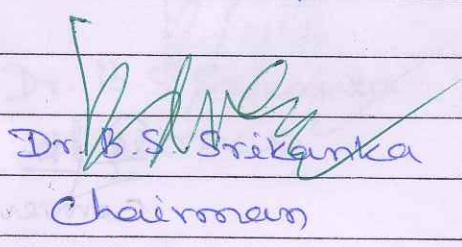 Dr. B. S. Srikanka
Chairman